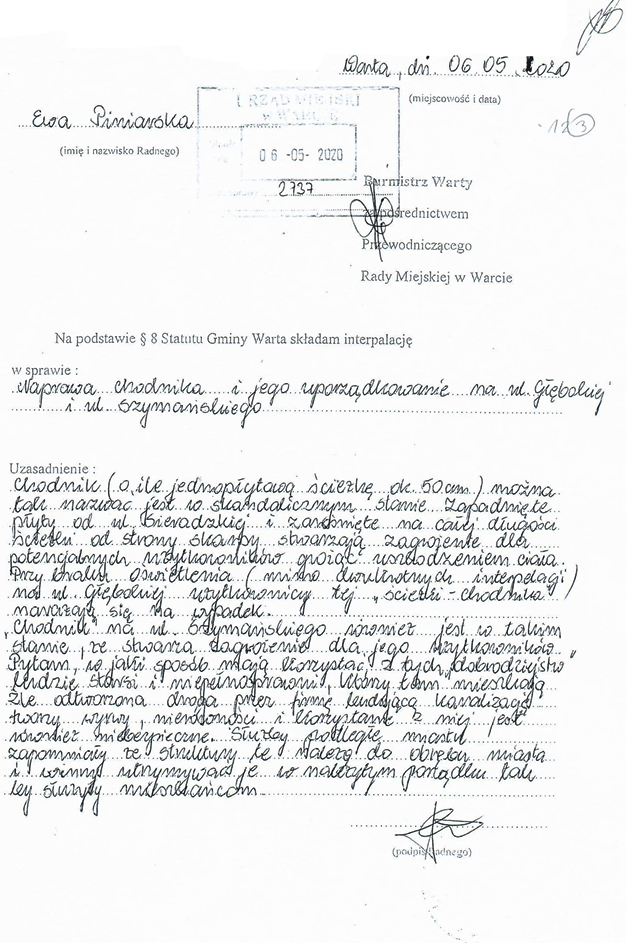 Warta, dn. 06.05.2020
(miejscowość i data)
Ewa Piniarska
(imię i nazwisko Radnego)
URZĄD MIEJSKI
w WARCIE
06 -05- 2020
2737
12(3)
Burmistrz Warty
za pośrednictwem
Przewodniczącego
Rady Miejskiej w Warcie
Na podstawie § 8 Statutu Gminy Warta składam interpalację
w sprawie :
Naprawa chodnika i jego uporządkowanie na ul. Głębokiej
i ul. Szymańskiego
Uzasadnienie :
Chodnik (o ile jednopłytową ścieżkę ok. 50 cm) można
tak nazwać jest w skandalicznym stanie. Zapadnięte
płyty od ul. Sieradzkiej i zarośnięte na całej długości
ścieżki od strony skarpy stwarzają zagrożenie dla
potencjalnych użytkowników grożąc uszkodzeniem ciała.
Przy braku oświetlenia (mimo dwukrotnych interpelacji)
na ul. Głębokiej użytkownicy tej "ścieżki-chodnika"
narażają się na wypadek.
"Chodnik" na ul. Szymańskiego również jest w takim
stanie, że stwarza zagrożenie dla jego użytkowników.
Pytam, w jaki sposób mają korzystać z tych "dobrodziejstw"
ludzie starsi i niepełnosprawni, którzy tam mieszkają
Źle odtworzona droga przez firmę budującą kanalizację
tworzy wyrwy, nierówności i korzystanie z niej jest
również niebezpieczne. Służby podległe miastu
zapomniały że struktury te należą do obrębu miasta
i winny utrzymywać je w należytym porządku tak
by służyły mieszkańcom.
(podpis Radnego)